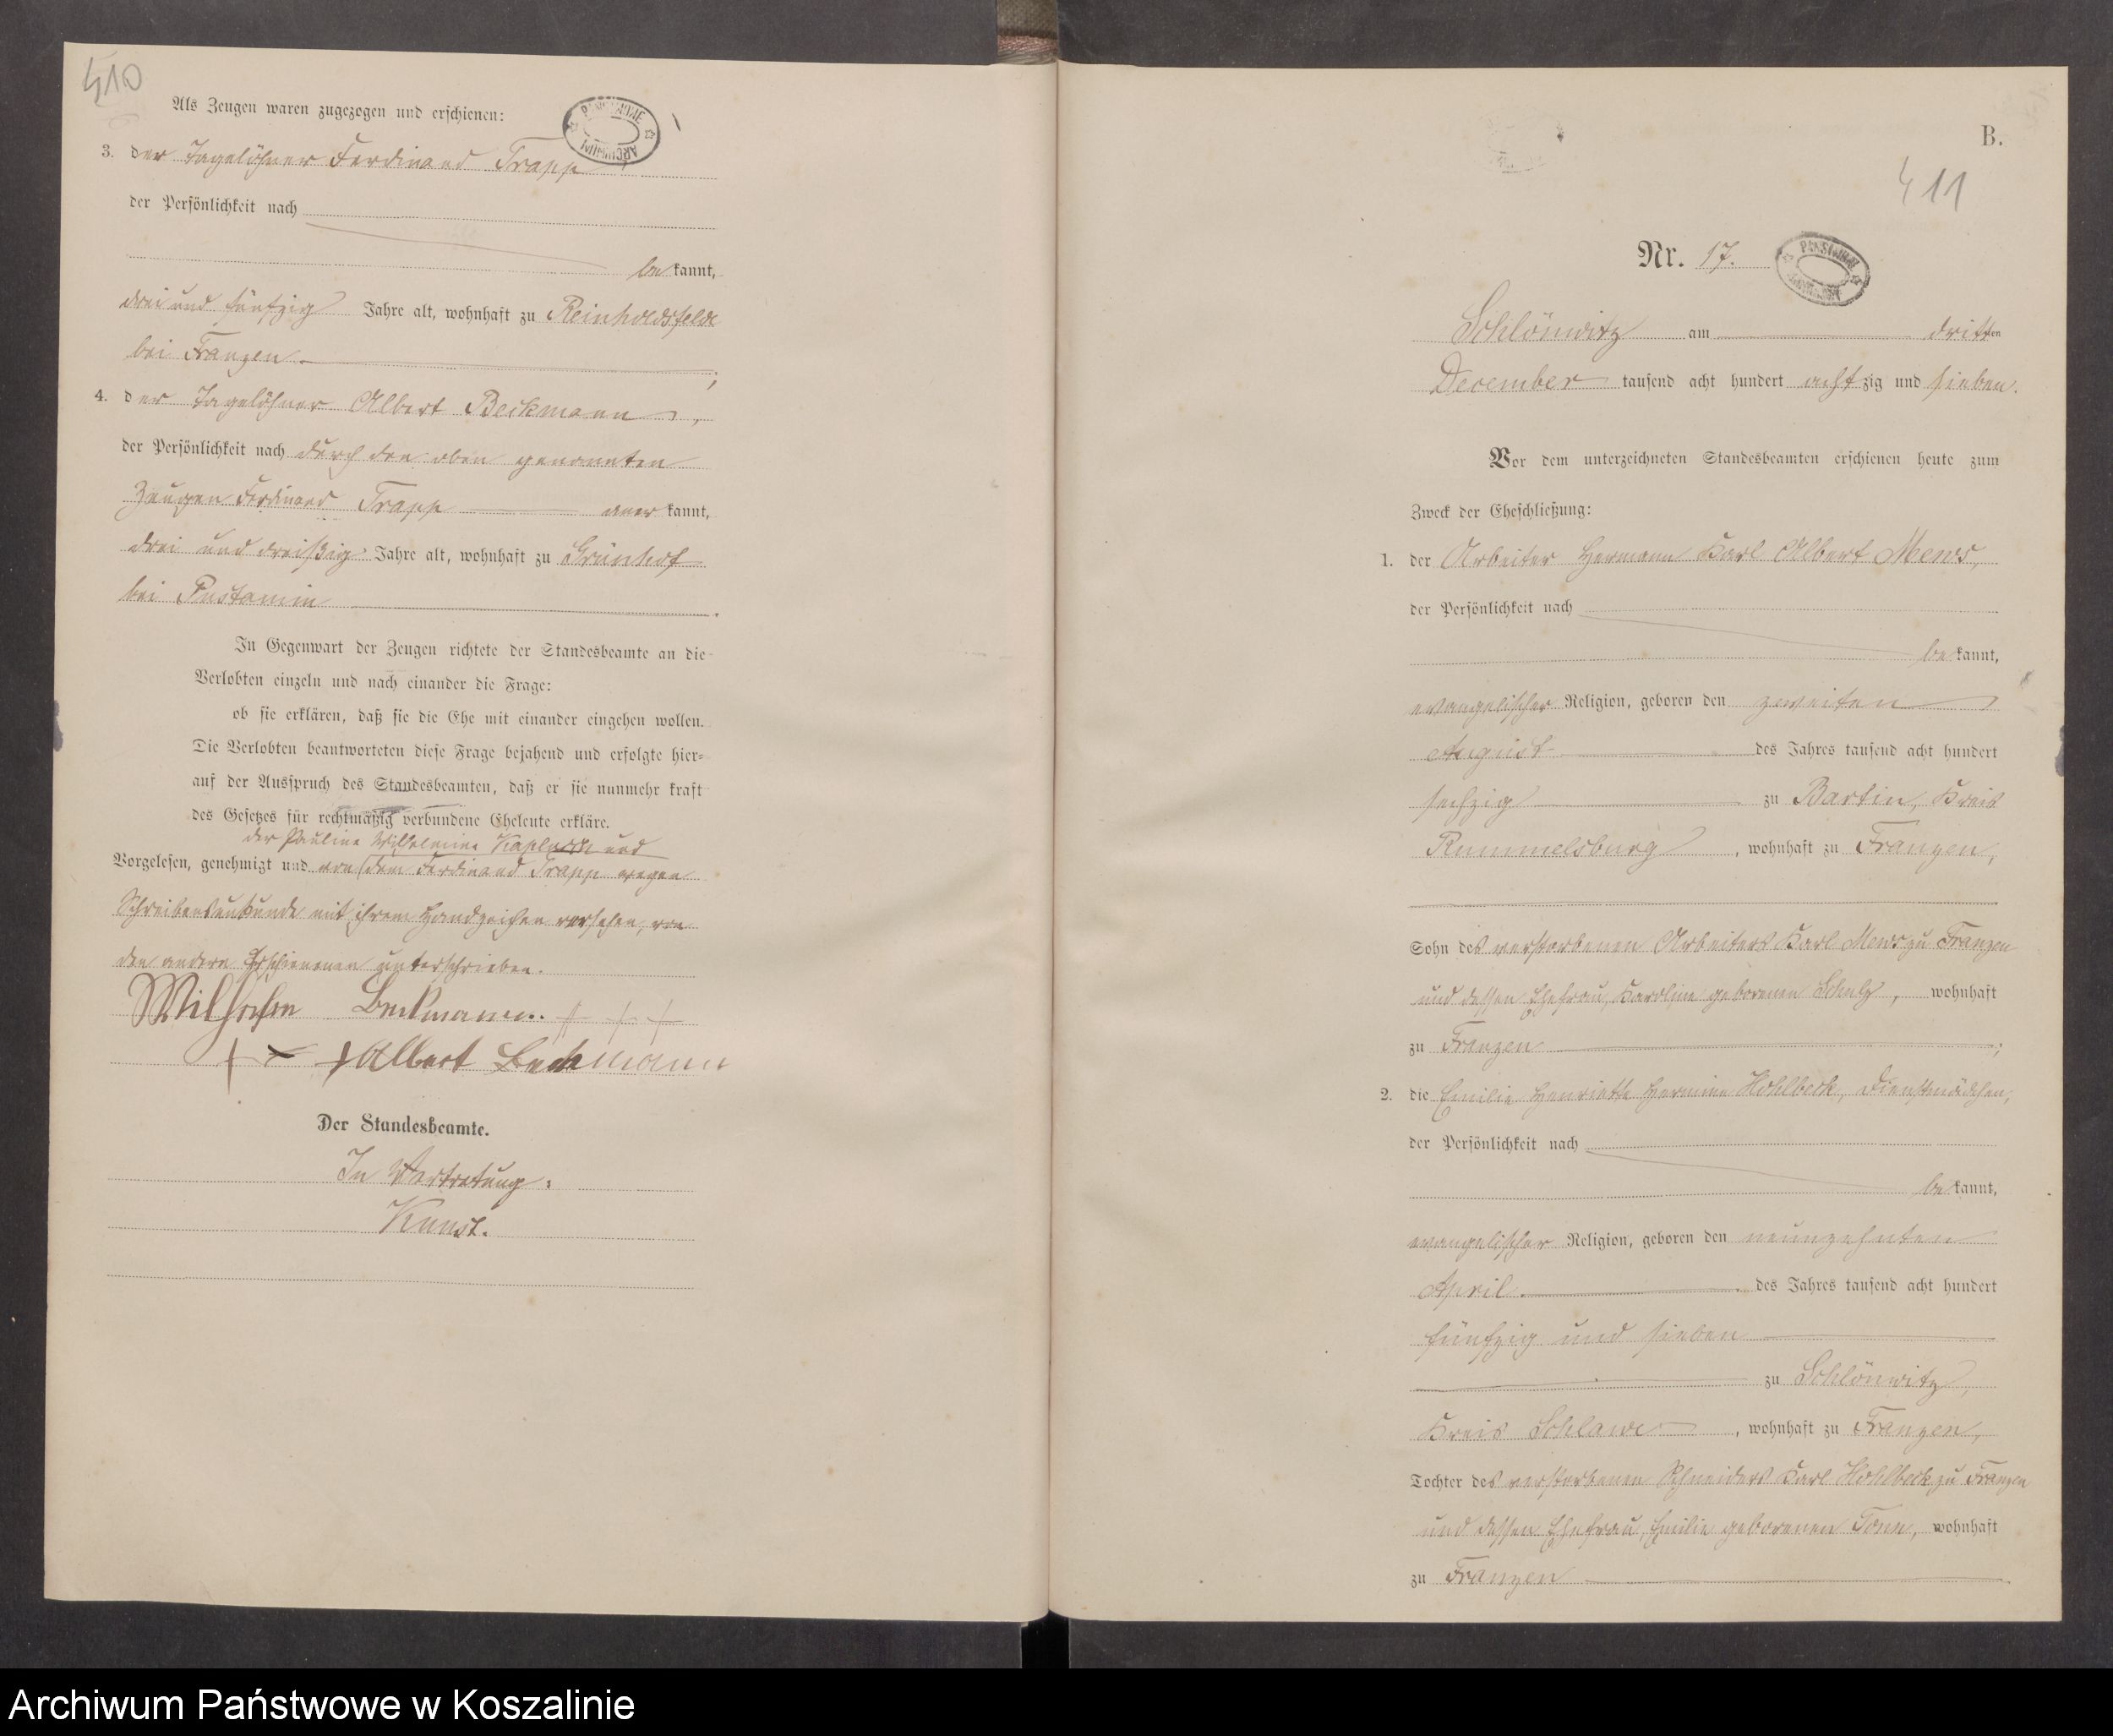 410
Als Zeugen waren zugezogen und erschienen:
3. der Tagelöhner Ferdinand Trapp
der Persönlichkeit nach
bekannt,
drei und fünfzig Jahre alt, wohnhaft zu Reinholdsfelde
bei Franzen;
4. der Tagelöhner Albert Beckmann,
der Persönlichkeit nach durch den oben genannten
Zeugen Ferdinand Trapp anerkannt,
drei und dreißig Jahre alt, wohnhaft zu Grünhof
bei Pustamin.
In Gegenwart der Zeugen richtete der Standesbeamte an die
Verlobten einzeln und nach einander die Frage:
ob sie erklären, daß sie die Ehe mit einander eingehen wollen.
Die Verlobten beantworteten diese Frage bejahend und erfolgte hier-
auf der Ausspruch des Standesbeamten, daß er sie nunmehr kraft
des Gesetzes für rechtmäßig verbundene Eheleute erkläre.
der Pauline Wilhelmine und
Vorgelesen, genehmigt und von dem Ferdinand Trapp wegen
Schreibensunkunde mit ihrem Handzeichen versehen, von
den andern Erschienenen unterschrieben.
Beckmann. + + +
+ + + Albert Beckmann
Der Standesbeamte.
In Vertretung:
Kunst.
B.
411
Nr. 17.
Schlönwitz am dritten
December tausend acht hundert achtzig und sieben.
Vor dem unterzeichneten Standesbeamten erschienen heute zum
Zweck der Eheschließung:
1. der Arbeiter Hermann Karl Albert Mews,
der Persönlichkeit nach
bekannt,
evangelischer Religion, geboren den zweiten
August des Jahres tausend acht hundert
sechzig zu Bartin, Kreis
Rummelsburg, wohnhaft zu Franzen,
Sohn des verstorbenen Arbeiters Karl Mews zu Franzen
und dessen Ehefrau, Karoline geborenen Schulz, wohnhaft
zu Franzen;
2. die Emilie Henriette Hermine Hohlbeck, Dienstmädchen,
der Persönlichkeit nach
bekannt,
evangelischer Religion, geboren den neunzehnten
April des Jahres tausend acht hundert
fünfzig und sieben
zu Schlönwitz,
Kreis Schlawe, wohnhaft zu Franzen,
Tochter des verstorbenen Schneiders Karl Hohlbeck zu Franzen
und dessen Ehefrau, Emilie geborenen Tonn, wohnhaft
zu Franzen
Archiwum Państwowe w Koszalinie